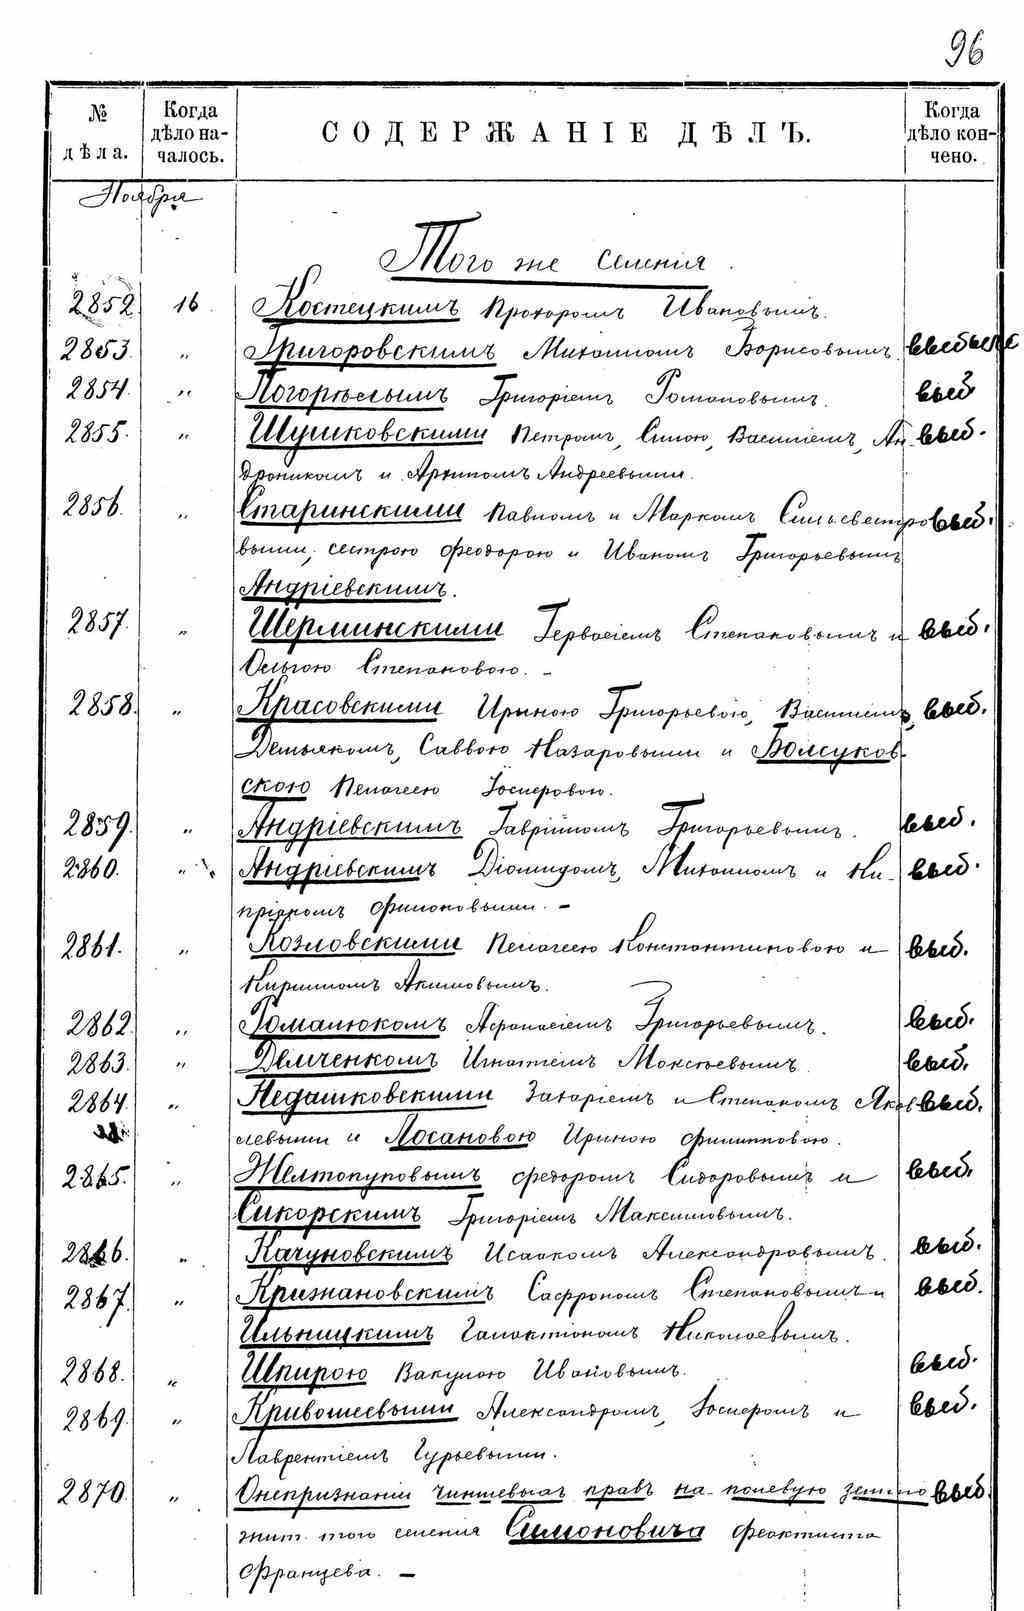 96
№ дѣла. Когда дѣло началось. СОДЕРЖАНІЕ ДѢЛЪ. Когда дѣло кончено.
Ноября
Того же селенія.
2852 16. Костецкимъ Прохоромъ Ивановымъ.
2853. " Григоровскимъ Михаиломъ Борисовымъ. выбыле
2854. " Погорѣлымъ Григоріемъ Романовымъ. выб
2855. " Шушковскими Петромъ, Силою, Василіемъ, Ан- выб.
дроникомъ и Архипомъ Андреевыми.
2856. " Старинскими Павломъ и Маркомъ Сильвестро- выб.
выми, сестрою Феодорою и Иваномъ Григорьевымъ
Андріевскимъ.
2857. " Шерминскими Гервасіемъ Степановымъ и выб.
Ольгою Степановою. –
2858. " Красовскими Ириною Григорьевою, Василіемъ, выб.
Демьяномъ, Саввою Назаровыми и Болсуков-
скою Пелагеею Іосиферовою.
2859. " Андріевскимъ Гавріиломъ Григорьевымъ. выб.
2860. " Андріевскимъ Діомидомъ, Михаиломъ и Ки- выб.
пріяномъ Филоновыми. –
2861. " Козловскими Пелагеею Константиновою и выб.
Кирилломъ Акимовымъ.
2862. " Романюкомъ Афанасіемъ Григорьевымъ. выб.
2863. " Демченкомъ Игнатіемъ Моксѣевымъ. выб.
2864. " Недашковскими Захаріемъ и Степаномъ Яков- выб.
левыми и Лосановою Ириною Филипповою.
2865. " Желтопуповымъ Федоромъ Сидоровымъ и выб.
Сикорскимъ Григоріемъ Максимовымъ.
2866. " Качуновскимъ Исаакомъ Александровымъ. выб.
2867. " Крижановскимъ Сафрономъ Степановымъ и выб.
Ильницкимъ Галактіономъ Николаевымъ.
2868. " Шпирою Вакулою Ивановымъ. выб.
2869. " Кривошеевыми Александромъ, Іосифомъ и выб.
Лаврентіемъ Гурьевыми.
2870. " О непризнаніи чиншевыхъ правъ на полевую землю выб.
жит. того селенія Симоновича Феоктиста
Францева. –